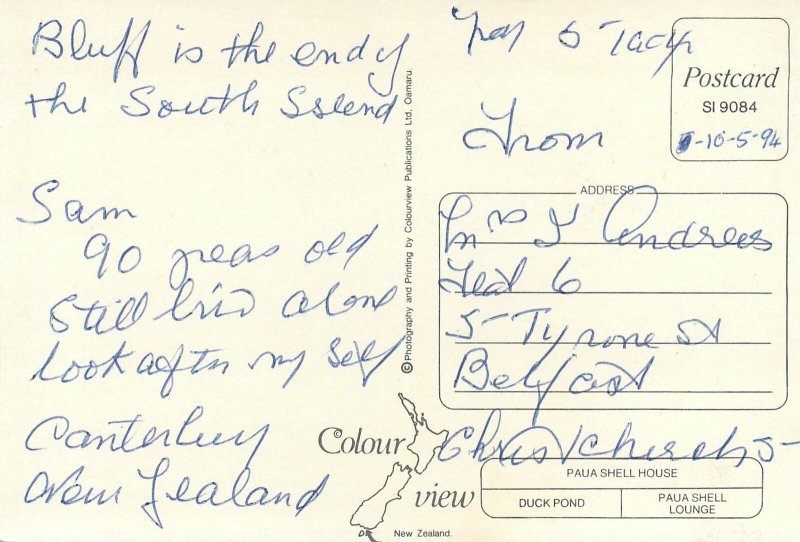 Bluff is the end of
the South Island
Sam
90 years old
Still live alone
look after my self
Canterbury
New Zealand
©Photography and Printing by Colourview Publications Ltd, Oamaru.
6
From
Postcard
SI 9084
5-10-5-94
ADDRESS
Mrs Andrews
Flat 6
5 Tyrone St
Belfast
Christchurch 5
Colour
view
New Zealand.
PAUA SHELL HOUSE
DUCK POND
PAUA SHELL
LOUNGE